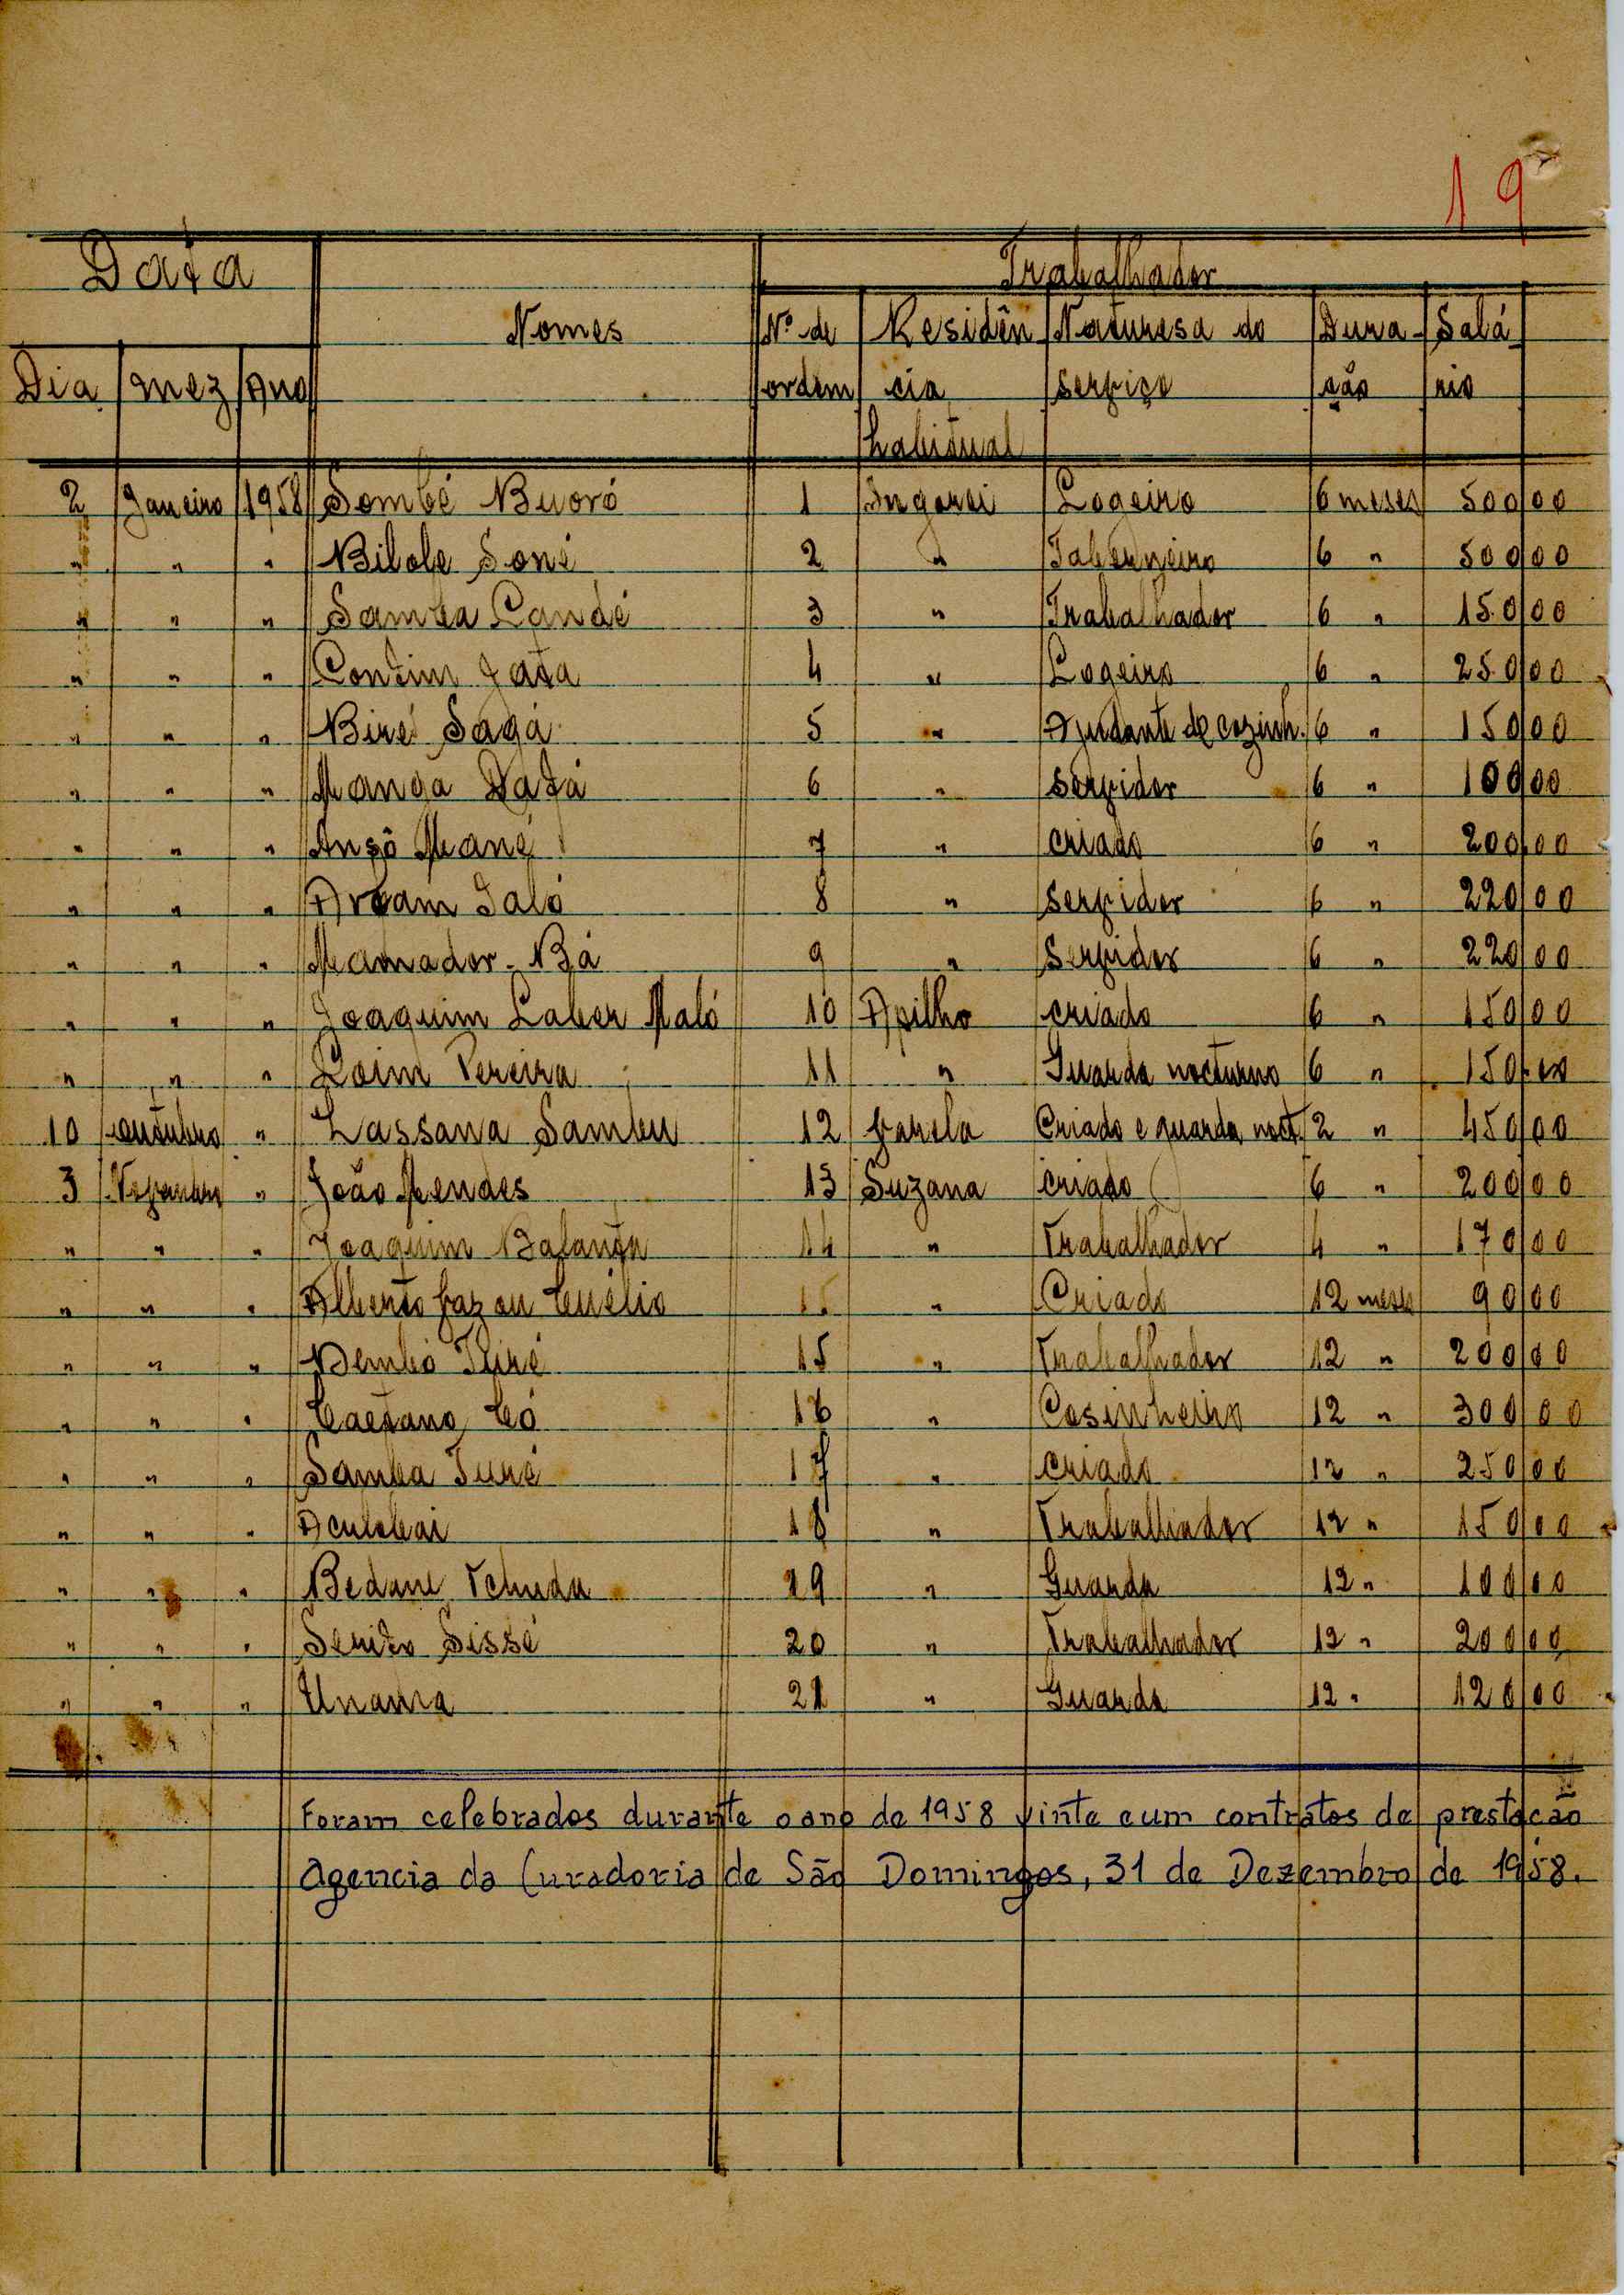 19
Data Trabalhador
Nomes Nº de Residên Naturesa do Dura- Salá
Dia mez Ano ordem cia serviço ção rio
habitual
2 Janeiro 1958 Sombé Buoró 1 Ingorei Logeiro 6 meses 500 00
" " " Bilole Soné 2 " Taberneiro 6 " 500 00
" " " Samba Candé 3 " Trabalhador 6 " 150 00
" " " Contim Jata 4 " Logeiro 6 " 250 00
" " " Biré Sagá 5 " Ajudante de cozinh. 6 " 150 00
" " " Manga Dafá 6 " servidor 6 " 100 00
" " " Ansô Mané 7 " criado 6 " 200 00
" " " Arbam Jaló 8 " servidor 6 " 220 00
" " " Mamador Bá 9 " servidor 6 " 220 00
" " " Joaquim Laber Naló 10 Apilho criado 6 " 150 00
" " " Loim Pereira 11 " Guarda nocturno 6 " 150 00
10 outubro " Lassana Sambu 12 Varela Criado e guarda noct. 2 " 450 00
3 Novembro " João Mendes 13 Suzana criado 6 " 200 00
" " " Joaquim Balanta 14 " Trabalhador 4 " 170 00
" " " Alberto " Criado 12 meses 90 00
" " " Dembó Turé 15 " Trabalhador 12 " 200 00
" " " Caetano Có 16 " Cosinheiro 12 " 300 00
" " " Samba Turé 17 " criado 12 " 250 00
" " " Aculobai 18 " Trabalhador 12 " 150 00
" " " Bedane Tchuda 19 " Guarda 12 " 100 00
" " " Sissé 20 " Trabalhador 12 " 200 00
" " " Unama 21 " Guarda 12 " 120 00
Foram celebrados durante o ano de 1958 vinte e um contratos de prestação
Agencia da Curadoria de São Domingos, 31 de Dezembro de 1958.